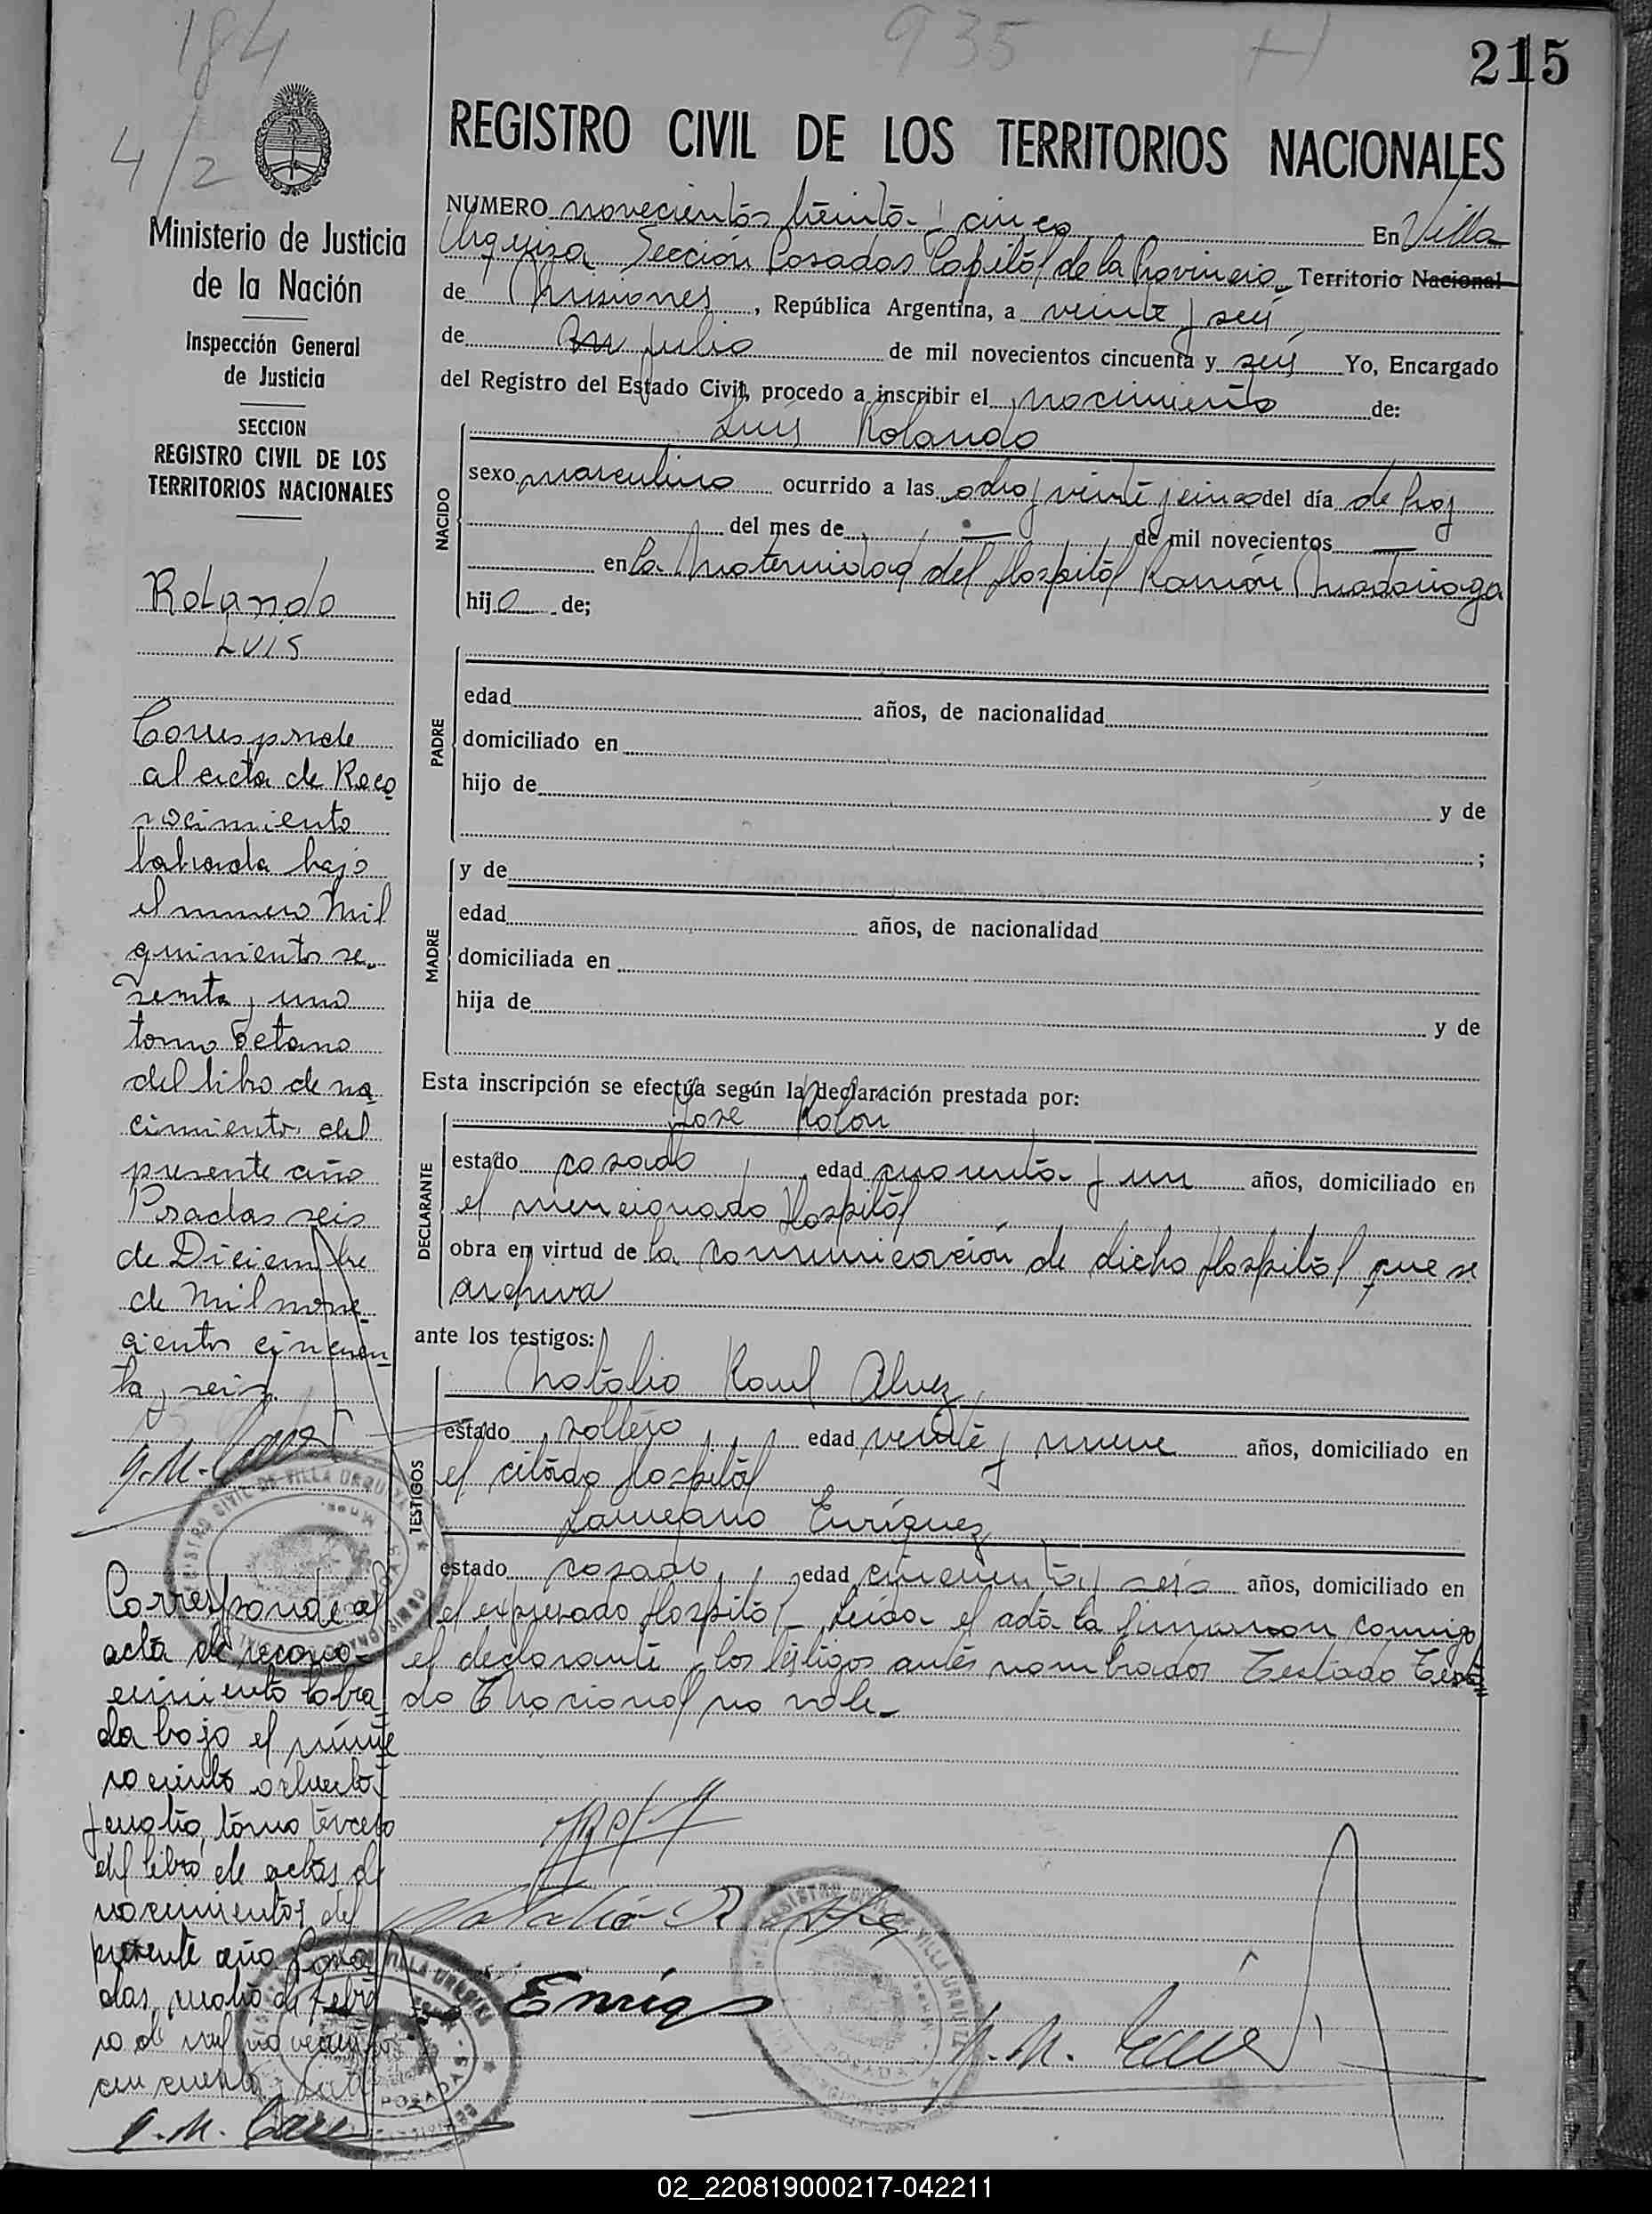 184
935
H
215
4/2
REGISTRO CIVIL DE LOS TERRITORIOS NACIONALES
Ministerio de Justicia
de la Nación
Inspección General
de Justicia
SECCION
REGISTRO CIVIL DE LOS
TERRITORIOS NACIONALES
Rolando
LUIS
Corresponde
al acta de Reco
nocimiento
labrada bajo
el numero Mil
quinientos se-
senta y uno
tomo octavo
del libro de na
cimientos del
presente año
Posadas seis
de Diciembre
de Mil nove-
cientos cincuen-
ta y seis
Corresponde al
acta de recono-
cimiento labra
da bajo el núme
ro ciento ochenta
y cuatro, tomo tercero
del libro de actas de
nacimientos del
presente año Posa
das, cuatro de Febre
ro de mil novecientos
cincuenta
NUMERO novecientos treinta y cinco En Villa
Urquiza Sección Posadas Capital de la Provincia Territorio Nacional
de Misiones, República Argentina, a veinte y seis
de julio de mil novecientos cincuenta y seis Yo, Encargado
del Registro del Estado Civil, procedo a inscribir el nacimiento de:
NACIDO
Luis Rolando
sexo masculino ocurrido a las ocho y veinte y cinco del día de hoy
del mes de — de mil novecientos —
en la Maternidad del Hospital Ramón Madariaga
hijo de;
PADRE
edad años, de nacionalidad
domiciliado en
hijo de y de
;
MADRE
y de
edad años, de nacionalidad
domiciliada en
hija de y de
Esta inscripción se efectúa según la declaración prestada por:
DECLARANTE
Jose Rolon
estado casado, edad cuarenta y un años, domiciliado en
el mencionado Hospital
obra en virtud de la comunicación de dicho Hospital que se
archiva
ante los testigos:
TESTIGOS
Natalio Raul Alvez,
estado soltero, edad veinte y nueve años, domiciliado en
el citado Hospital
Laureano Enríquez
estado casado, edad cincuenta y seis años, domiciliado en
el expresado Hospital Leida el acta la firmaron conmigo
el declarante y los testigos antes nombrados Testado Testa=
do Nacional no vale-
Natalio R
Enriq
REGISTRO CIVIL DE VILLA URQUIZA
POSADAS
02_220819000217-042211